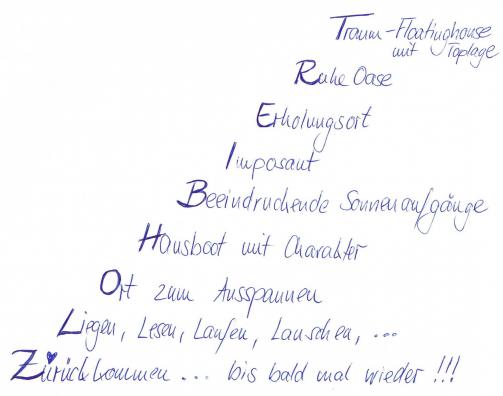 Traum-Floatinghouse
mit Toplage
Ruhe Oase
Erholungsort
Imposant
Beeindruckende Sonnenaufgänge
Hausboot mit Charakter
Ort zum Ausspannen
Liegen, Lesen, Laufen, Lauschen, ...
Zurückkommen ... bis bald mal wieder !!!